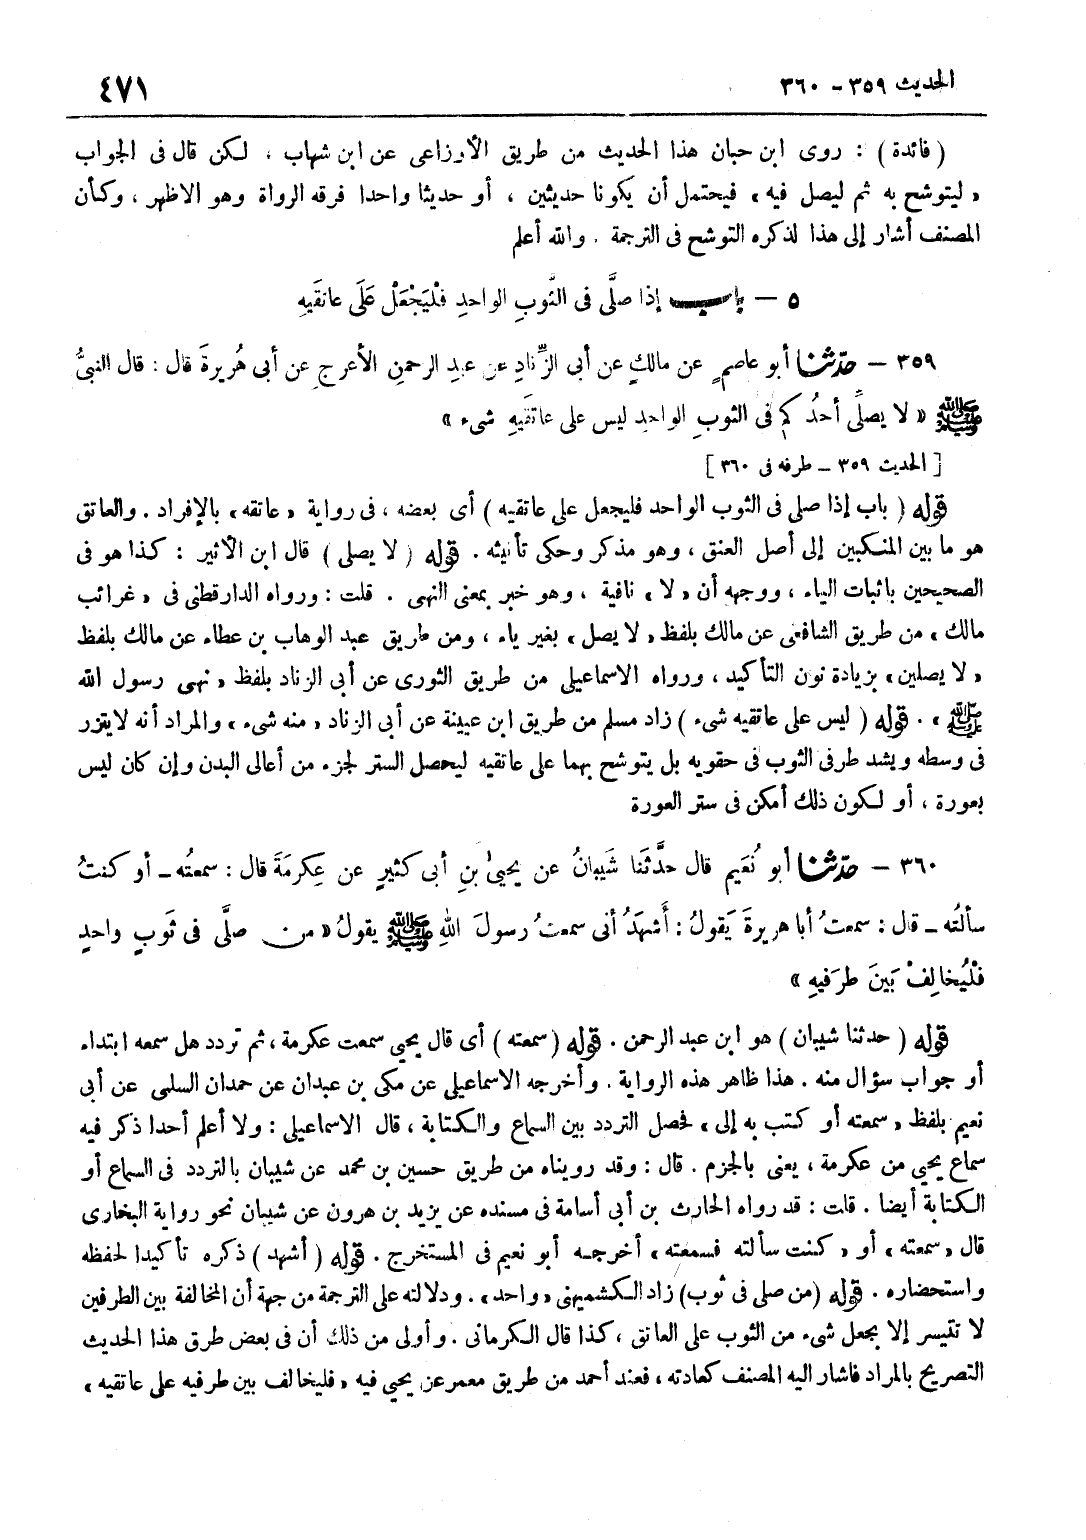 الحديث ٣٥٩ - ٣٦٠
٤٧١
( فائدة ) : روى ابن حبان هذا الحديث من طريق الأوزاعى عن ابن شهاب ، لكن قال فى الجواب
« ليتوشح به ثم ليصل فيه » فيحتمل أن يكونا حديثين ، أو حديثا واحدا فرقه الرواة وهو الاظهر ، وكأن
المصنف أشار إلى هذا لذكره التوشح فى الترجمة . والله أعلم
٥ - باب إذا صلَّى فى الثَّوبِ الواحدِ فلْيَجْعَلْ عَلَى عاتقَيهِ
٣٥٩ - حدّثنا أبو عاصمٍ عن مالكٍ عن أبى الزِّنادِ عن عبدِ الرحمنِ الأعرجِ عن أبى هُريرةَ قال : قال النبىُّ
ﷺ « لا يصلِّى أحدُكم فى الثوبِ الواحدِ ليس على عاتقَيهِ شىء »
[ الحديث ٣٥٩ - طرفه فى ٣٦٠ ]
قوله ( باب إذا صلى فى الثوب الواحد فليجعل على عاتقيه ) أى بعضه ، فى رواية « عاتقه » بالإفراد . والعاتق
هو ما بين المنكبين إلى أصل العنق ، وهو مذكر وحكى تأنيثه . قوله ( لا يصلى ) قال ابن الأثير : كذا هو فى
الصحيحين باثبات الياء ، ووجهه أن « لا » نافية ، وهو خبر بمعنى النهى . قلت : ورواه الدارقطنى فى « غرائب
مالك » من طريق الشافعى عن مالك بلفظ « لا يصل » بغير ياء ، ومن طريق عبد الوهاب بن عطاء عن مالك بلفظ
« لا يصلين » بزيادة نون التأكيد ، ورواه الاسماعيلى من طريق الثورى عن أبى الزناد بلفظ « نهى رسول الله
ﷺ » . قوله ( ليس على عاتقيه شىء ) زاد مسلم من طريق ابن عيينة عن أبى الزناد « منه شىء » والمراد أنه لا يتزر
فى وسطه ويشد طرفى الثوب فى حقويه بل يتوشح بهما على عاتقيه ليحصل الستر لجزء من أعالى البدن وإن كان ليس
بعورة ، أو لكون ذلك أمكن فى ستر العورة
٣٦٠ - حدّثنا أبو نُعَيم قال حدَّثَنا شَيبانُ عن يحيىٰ بنِ أبى كثيرٍ عن عِكرمَةَ قال : سمعتُه - أو كنتُ
سألتُه - قال : سمعتُ أبا هريرةَ يَقولُ : أَشهَدُ أنى سمعتُ رسولَ اللهِ ﷺ يقولُ « من صلَّى فى ثَوبٍ واحدٍ
فلْيُخالِفْ بَينَ طرَفيهِ »
قوله ( حدثنا شيبان ) هو ابن عبد الرحمن . قوله ( سمعته ) أى قال يحيى سمعت عكرمة ، ثم تردد هل سمعه ابتداء
أو جواب سؤال منه . هذا ظاهر هذه الرواية . وأخرجه الاسماعيلى عن مكى بن عبدان عن حمدان السلمى عن أبى
نعيم بلفظ « سمعته أو كتب به إلى » فحصل التردد بين السماع والكتابة ، قال الاسماعيلى : ولا أعلم أحدا ذكر فيه
سماع يحيى من عكرمة ، يعنى بالجزم . قال : وقد رويناه من طريق حسين بن محمد عن شيبان بالتردد فى السماع أو
الكتابة أيضا . قلت : قد رواه الحارث بن أبى أسامة فى مسنده عن يزيد بن هرون عن شيبان نحو رواية البخارى
قال « سمعته » أو « كنت سألته فسمعته » أخرجه أبو نعيم فى المستخرج . قوله ( أشهد ) ذكره تأكيدا لحفظه
واستحضاره . قوله ( من صلى فى ثوب ) زاد الكشميهنى « واحد » . ودلالته على الترجمة من جهة أن المخالفة بين الطرفين
لا تتيسر إلا بجعل شىء من الثوب على العاتق ، كذا قال الكرمانى . وأولى من ذلك أن فى بعض طرق هذا الحديث
التصريح بالمراد فاشار اليه المصنف كعادته ، فعند أحمد من طريق معمر عن يحيى فيه « فليخالف بين طرفيه على عاتقيه »